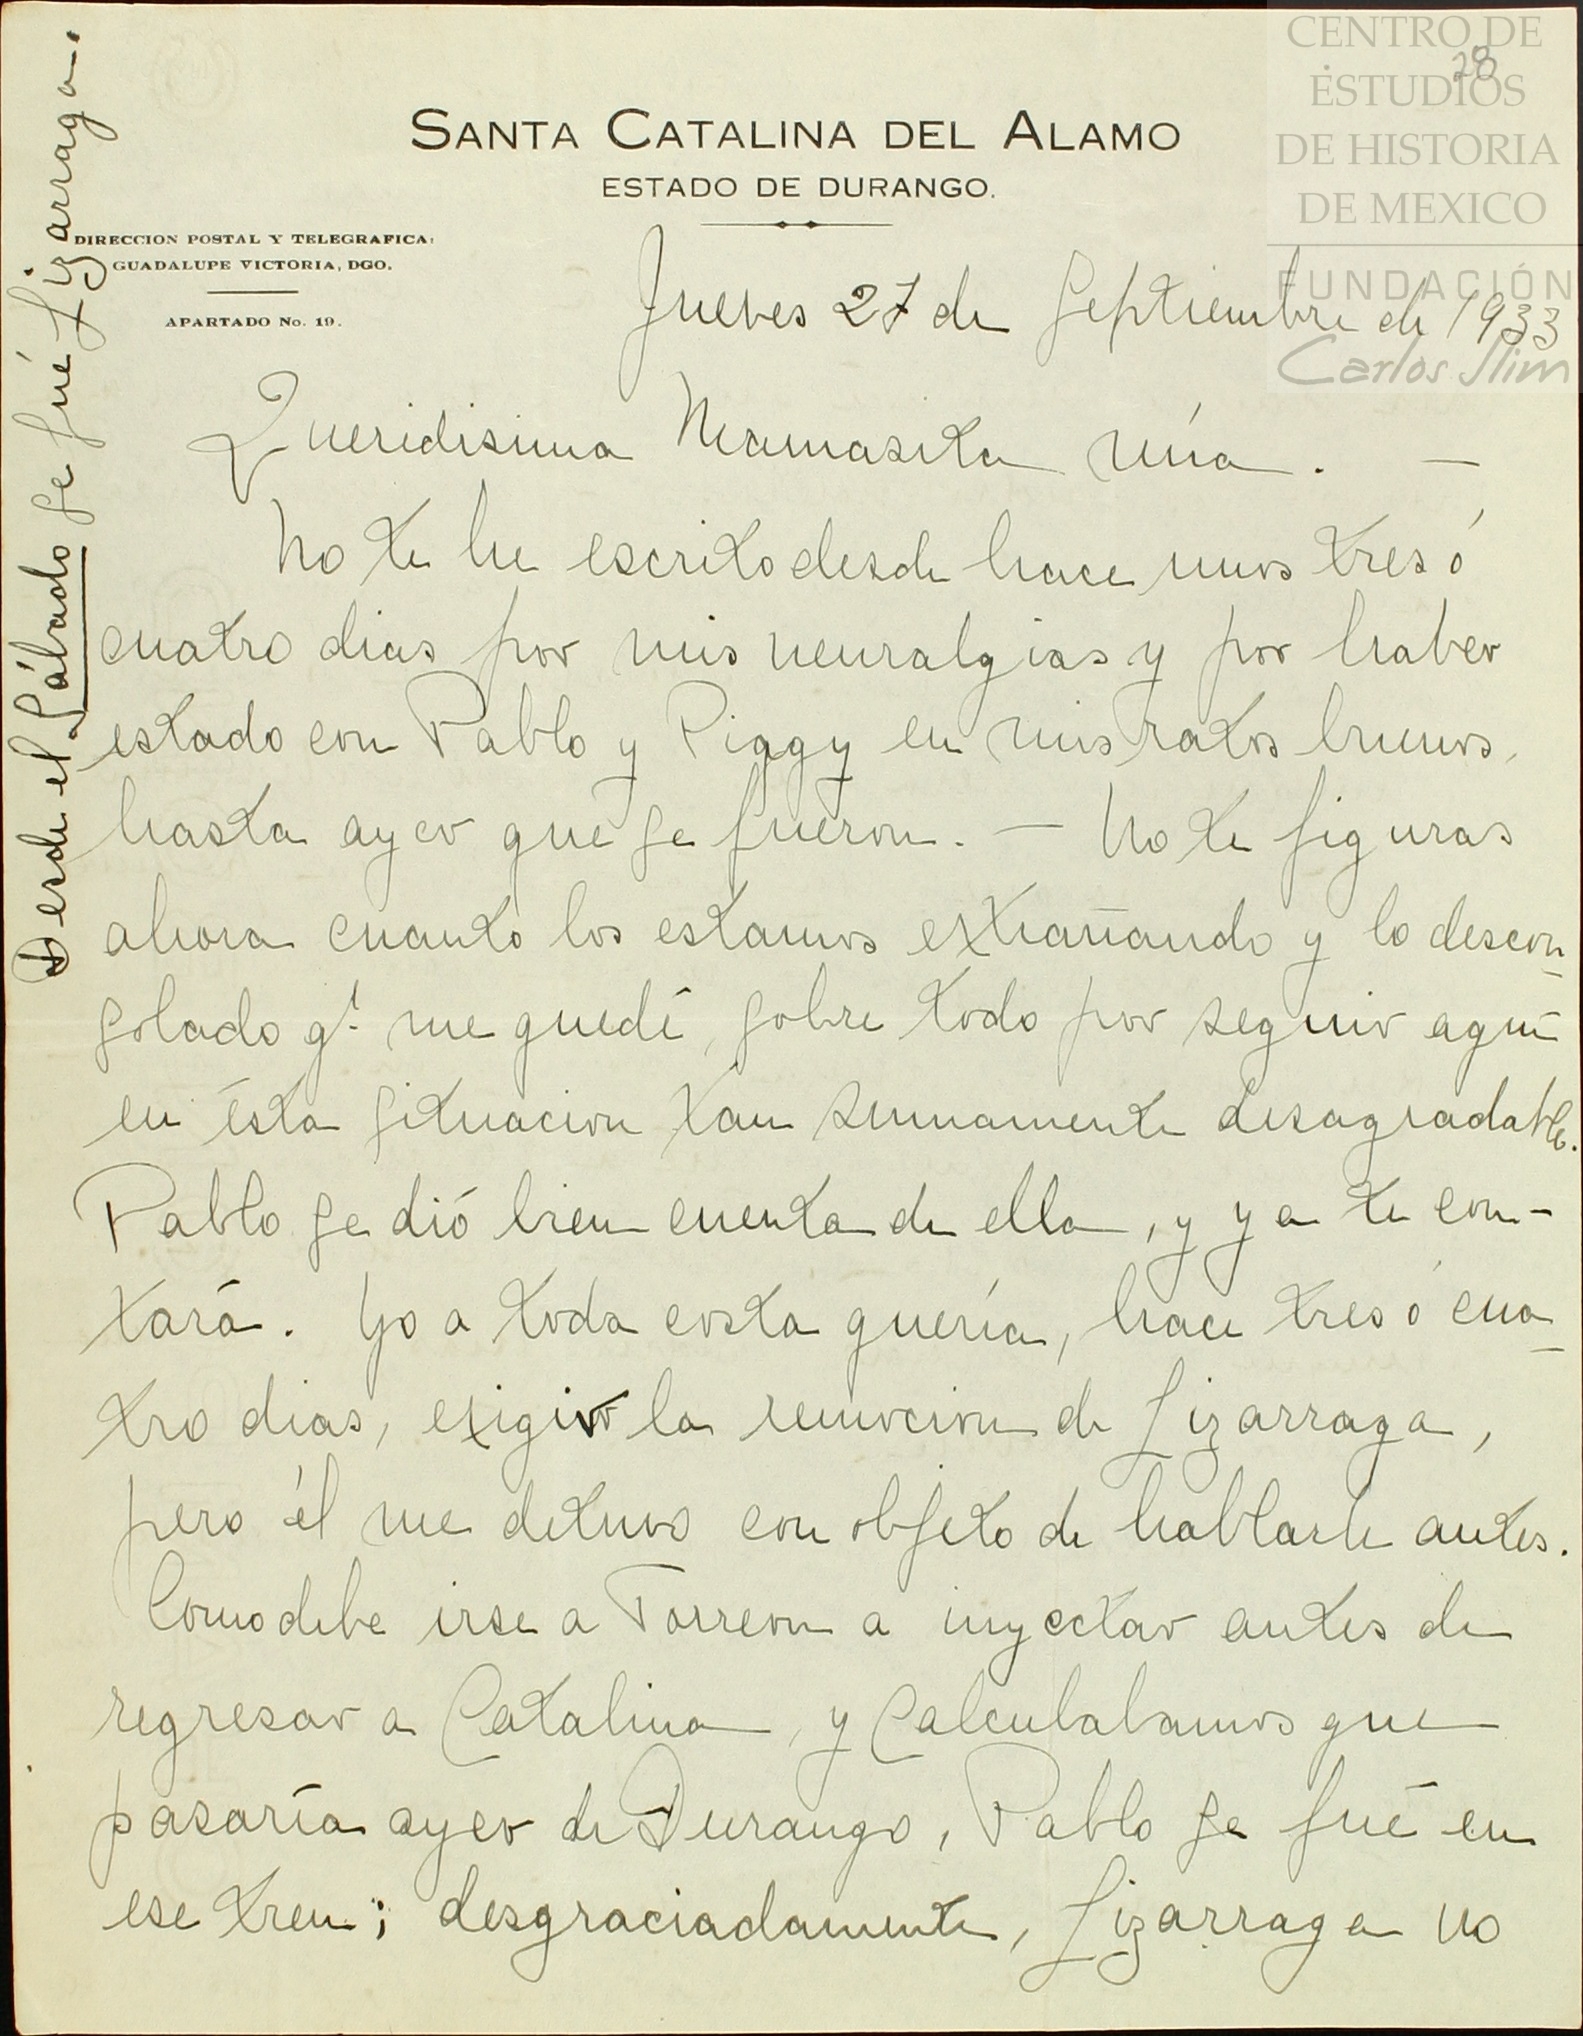 CENTRO DE
ESTUDIOS
DE HISTORIA
DE MEXICO
FUNDACIÓN
Carlos Slim
28
SANTA CATALINA DEL ALAMO
ESTADO DE DURANGO.
DIRECCION POSTAL Y TELEGRAFICA:
GUADALUPE VICTORIA, DGO.
APARTADO No. 19.
Jueves 27 de Septiembre de 1933
Queridisima Mamasita mía. —
No te he escrito desde hace unos tres ó
cuatro dias por mis neuralgias y por haber
estado con Pablo y Piggy en mis ratos buenos,
hasta ayer que se fueron. — No te figuras
ahora cuanto los estamos extrañando y lo descon-
solado q. me quedé, sobre todo por seguir aquí
en ésta situacion tan sumamente desagradable.
Pablo se dió bien cuenta de ella, y ya te con-
tará. Yo a toda costa quería, hace tres ó cua-
tro dias, exigir la remocion de Lizarraga,
pero él me detuvo con objeto de hablarle antes.
Como debe irse a Torreon a inyectar antes de
regresar a Catalina, y calculabamos que
pasaría ayer de Durango, Pablo se fué en
ese tren; desgraciadamente, Lizarraga no
Desde el Sábado se fué Lizarraga.